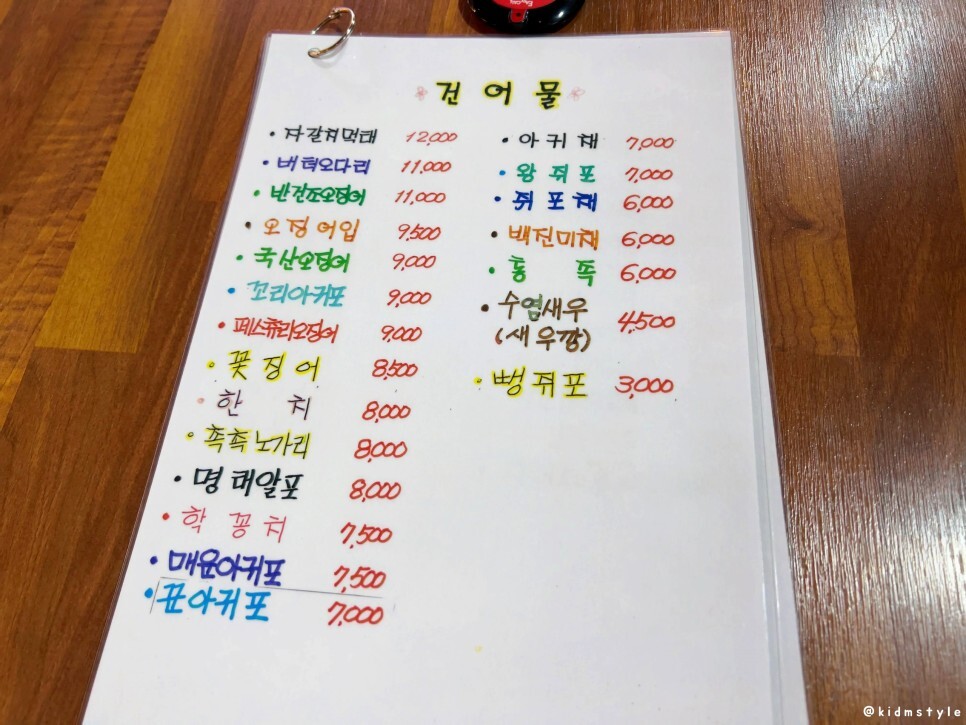 건어물
• 자갈치먹태 12,000
• 버터오다리 11,000
• 반건조오징어 11,000
• 오징어입 9,500
• 국산오징어 9,000
• 꼬리아귀포 9,000
• 페스츄리오징어 9,000
• 꽃징어 8,500
• 한치 8,000
• 촉촉노가리 8,000
• 명태알포 8,000
• 학꽁치 7,500
• 매운아귀포 7,500
• 꾼아귀포 7,000
• 아귀채 7,000
• 왕쥐포 7,000
• 쥐포채 6,000
• 백진미채 6,000
• 통쪽 6,000
• 수염새우
(새우깡) 4,500
• 뻥쥐포 3,000
@kidmstyle